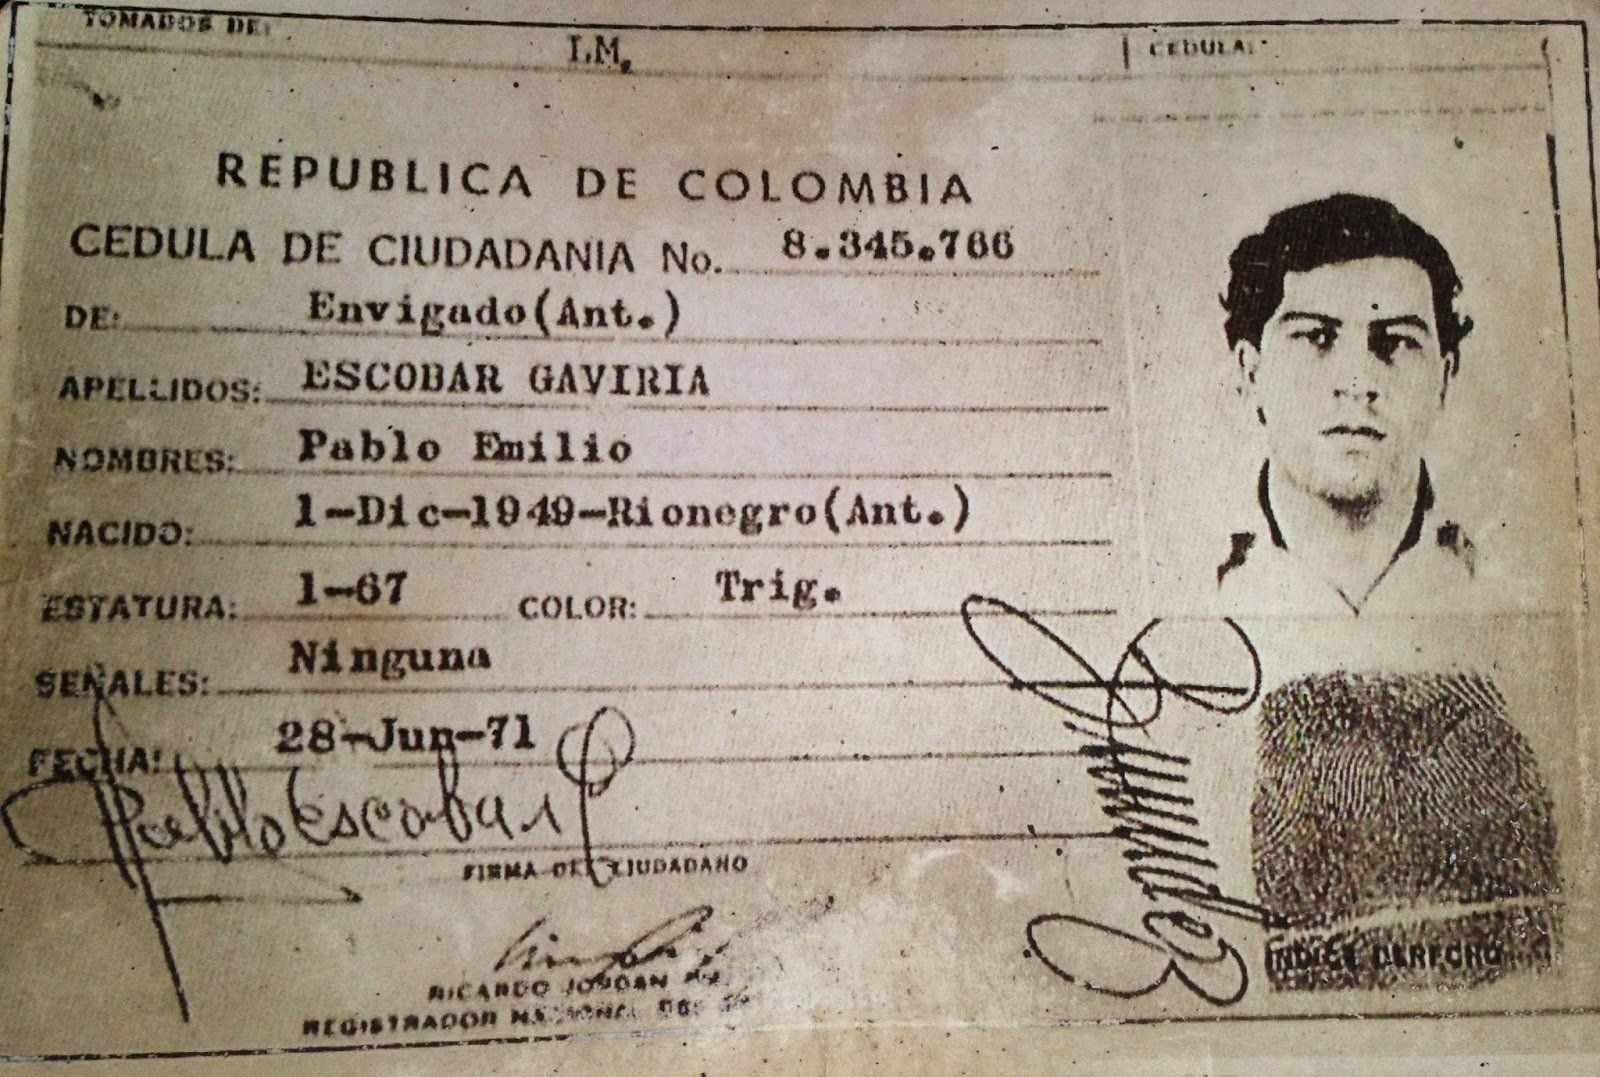 TOMADOS DE:
I.M.
CEDULA:
REPUBLICA DE COLOMBIA
CEDULA DE CIUDADANIA No. 8.345.766
DE: Envigado(Ant.)
APELLIDOS: ESCOBAR GAVIRIA
NOMBRES: Pablo Emilio
NACIDO: 1-Dic-1949-Rionegro(Ant.)
ESTATURA: 1-67 COLOR: Trig.
SEÑALES: Ninguna
FECHA: 28-Jun-71
Pablo Escobar
FIRMA DEL CIUDADANO
INDICE DERECHO
RICARDO JORDAN
REGISTRADOR NACIONAL DEL